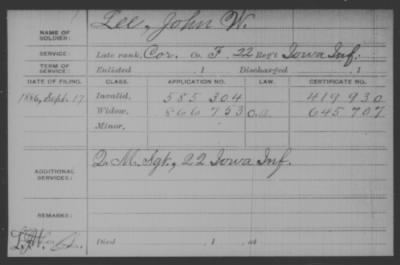 NAME OF SOLDIER: Lee, John W.
SERVICE: Late rank, Cor. Co. F, 22 Reg't Iowa Inf.
TERM OF SERVICE: Enlisted , 1 Discharged , 1
DATE OF FILING. CLASS. APPLICATION NO. LAW. CERTIFICATE NO.
1886, Sept. 17 Invalid, 585 304 419 930
Widow, 866 753 645 707
Minor,
ADDITIONAL SERVICES: Q. M. Sgt., 22 Iowa Inf.
REMARKS:
Died , 1 , at